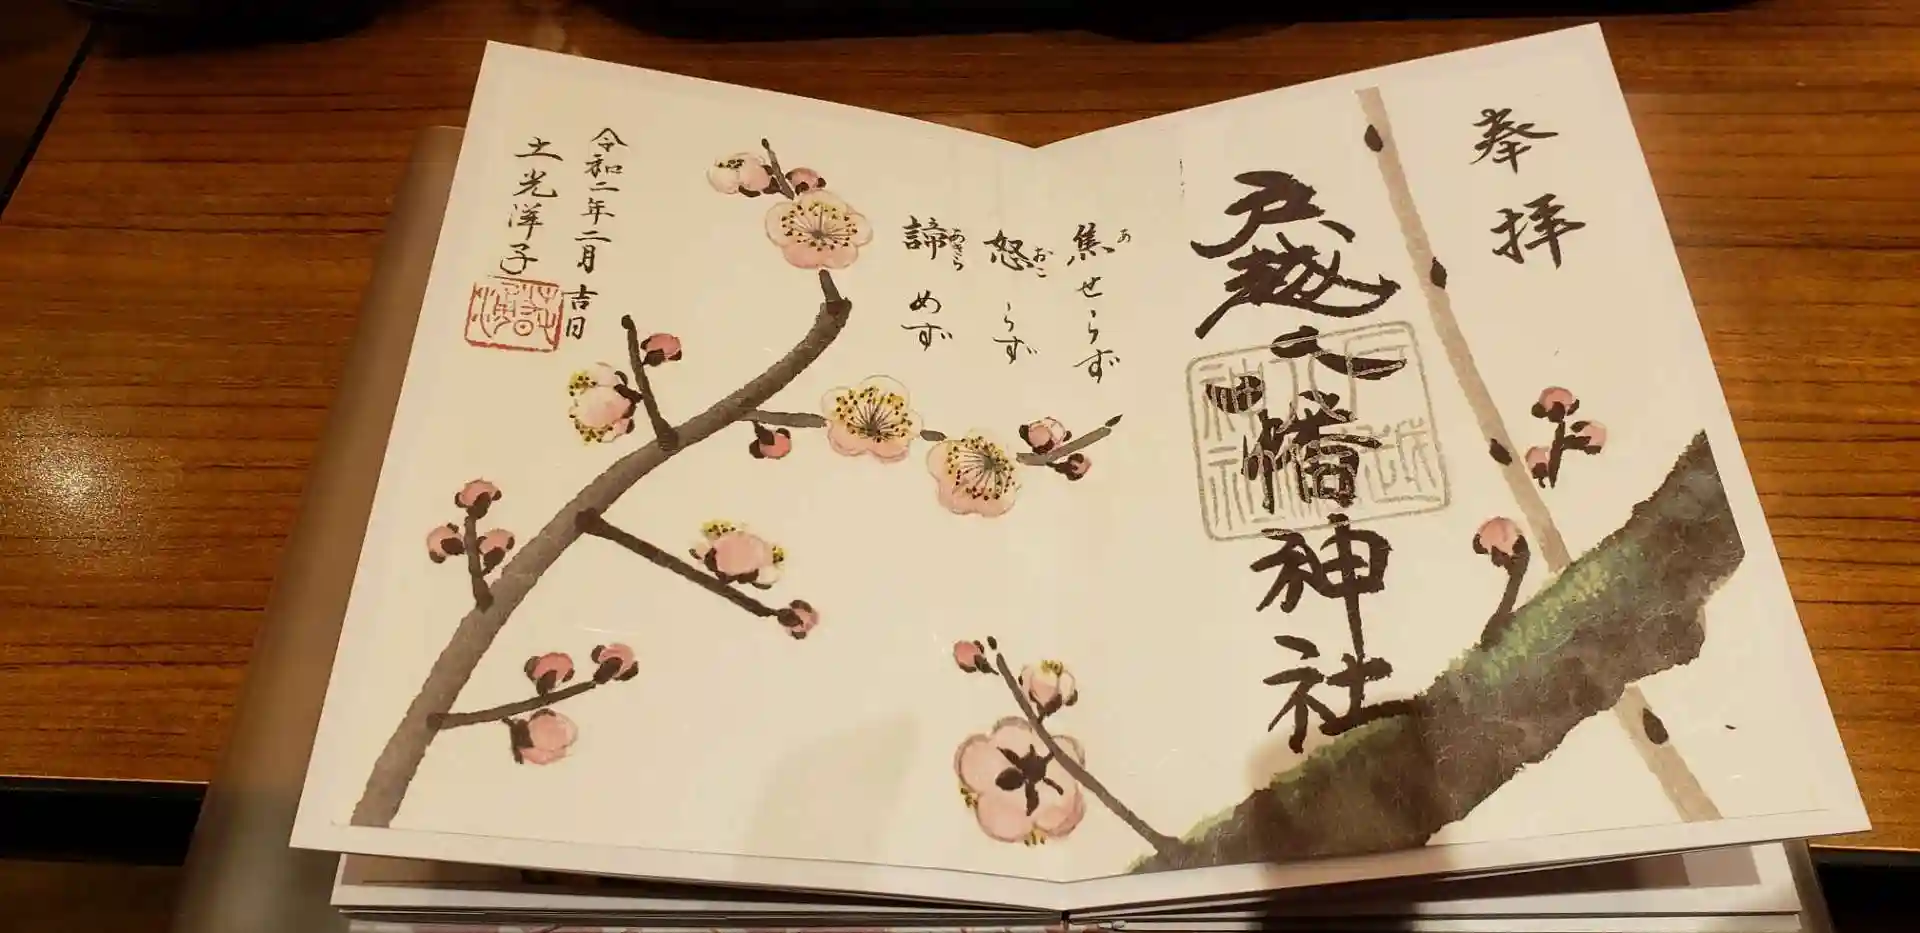 奉拝
戸越八幡神社
焦せらず
あ
怒らず
おこ
諦めず
あきら
令和二年二月吉日
土光洋子
戸越
八幡
神社